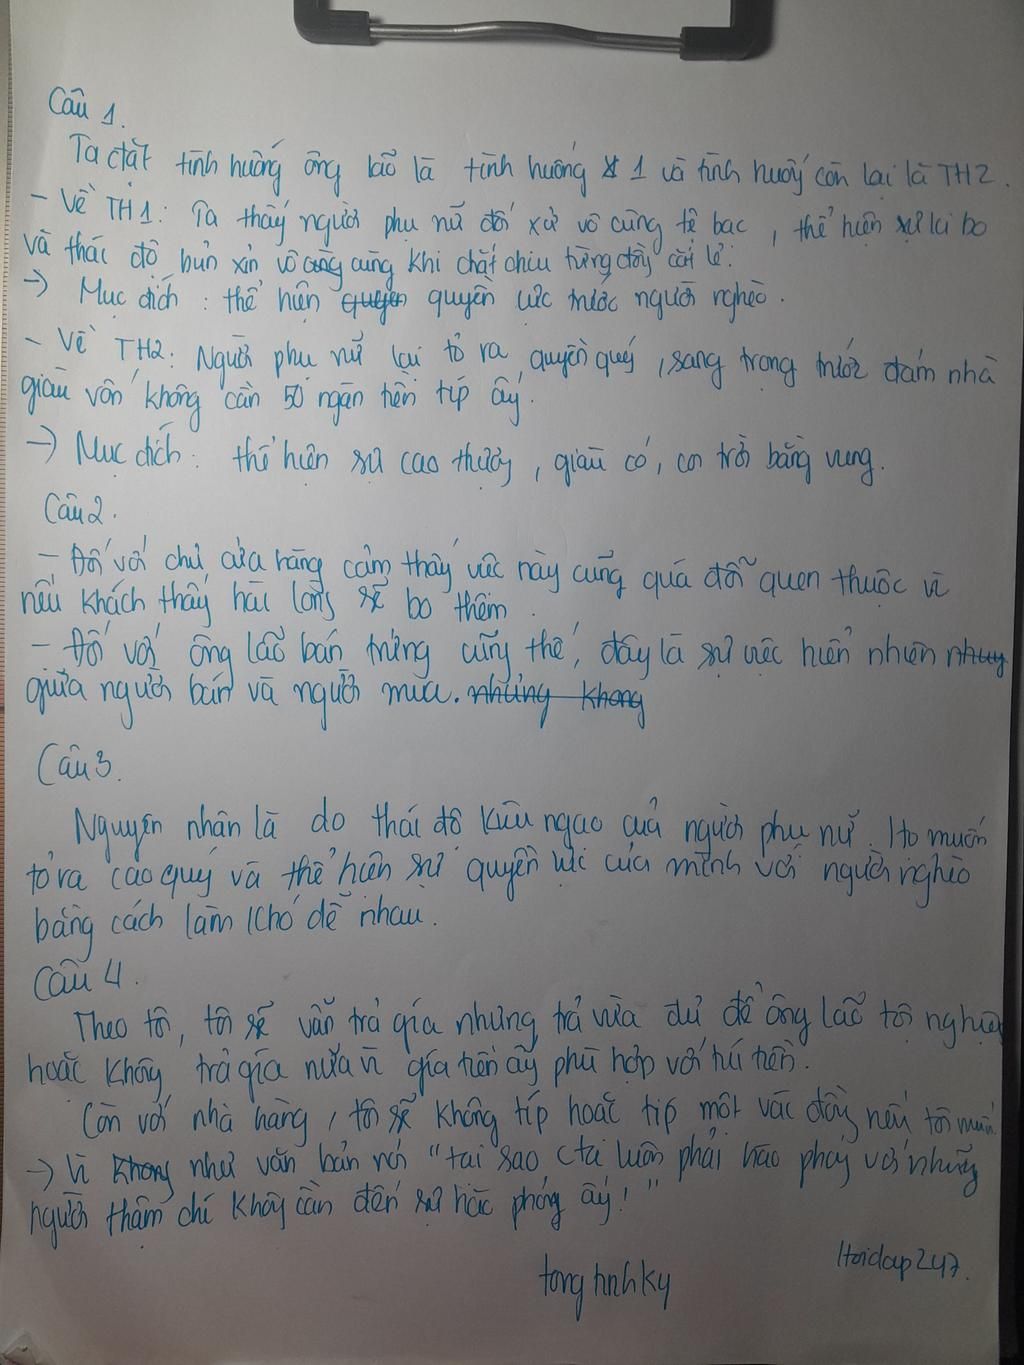 Câu 1.
Ta đặt tình huống ông lão là tình huống 1 và tình huống còn lại là TH2.
- Về TH1: Ta thấy người phụ nữ đối xử vô cùng tệ bạc, thể hiện sự
và thái độ bủn xỉn vô cùng khi chắt chiu từng đồng cắt lẻ.
-> Mục đích: thể hiện quyền lực trước người nghèo.
- Về TH2: Người phụ nữ lại tỏ ra quyền quý, sang trọng trước đám nhà
giàu vốn không cần 50 ngàn tiền típ ấy.
-> Mục đích: thể hiện sự cao thượng, giàu có, coi trời bằng vung.
Câu 2.
- Đối với chủ cửa hàng cảm thấy việc này cũng quá đỗi quen thuộc vì
nếu khách thấy hài lòng sẽ bo thêm.
- Đối với ông lão bán trứng cũng thế, đây là sự việc hiển nhiên
giữa người bán và người mua.
Câu 3.
Nguyên nhân là do thái độ kiêu ngạo của người phụ nữ. Họ muốn
tỏ ra cao quý và thể hiện sự quyền lực của mình với người nghèo
bằng cách làm khó dễ nhau.
Câu 4.
Theo tôi, tôi sẽ vẫn trả giá nhưng trả vừa đủ để ông lão tội nghiệp
hoặc không trả giá nữa vì giá tiền ấy phù hợp với túi tiền.
Còn với nhà hàng, tôi sẽ không típ hoặc tip một vài đồng nếu tôi muốn.
-> Vì như văn bản nói "tại sao cta luôn phải hào phóng với những
người thậm chí không cần đến sự hào phóng ấy!"
Hoidap247.
tonghnhky